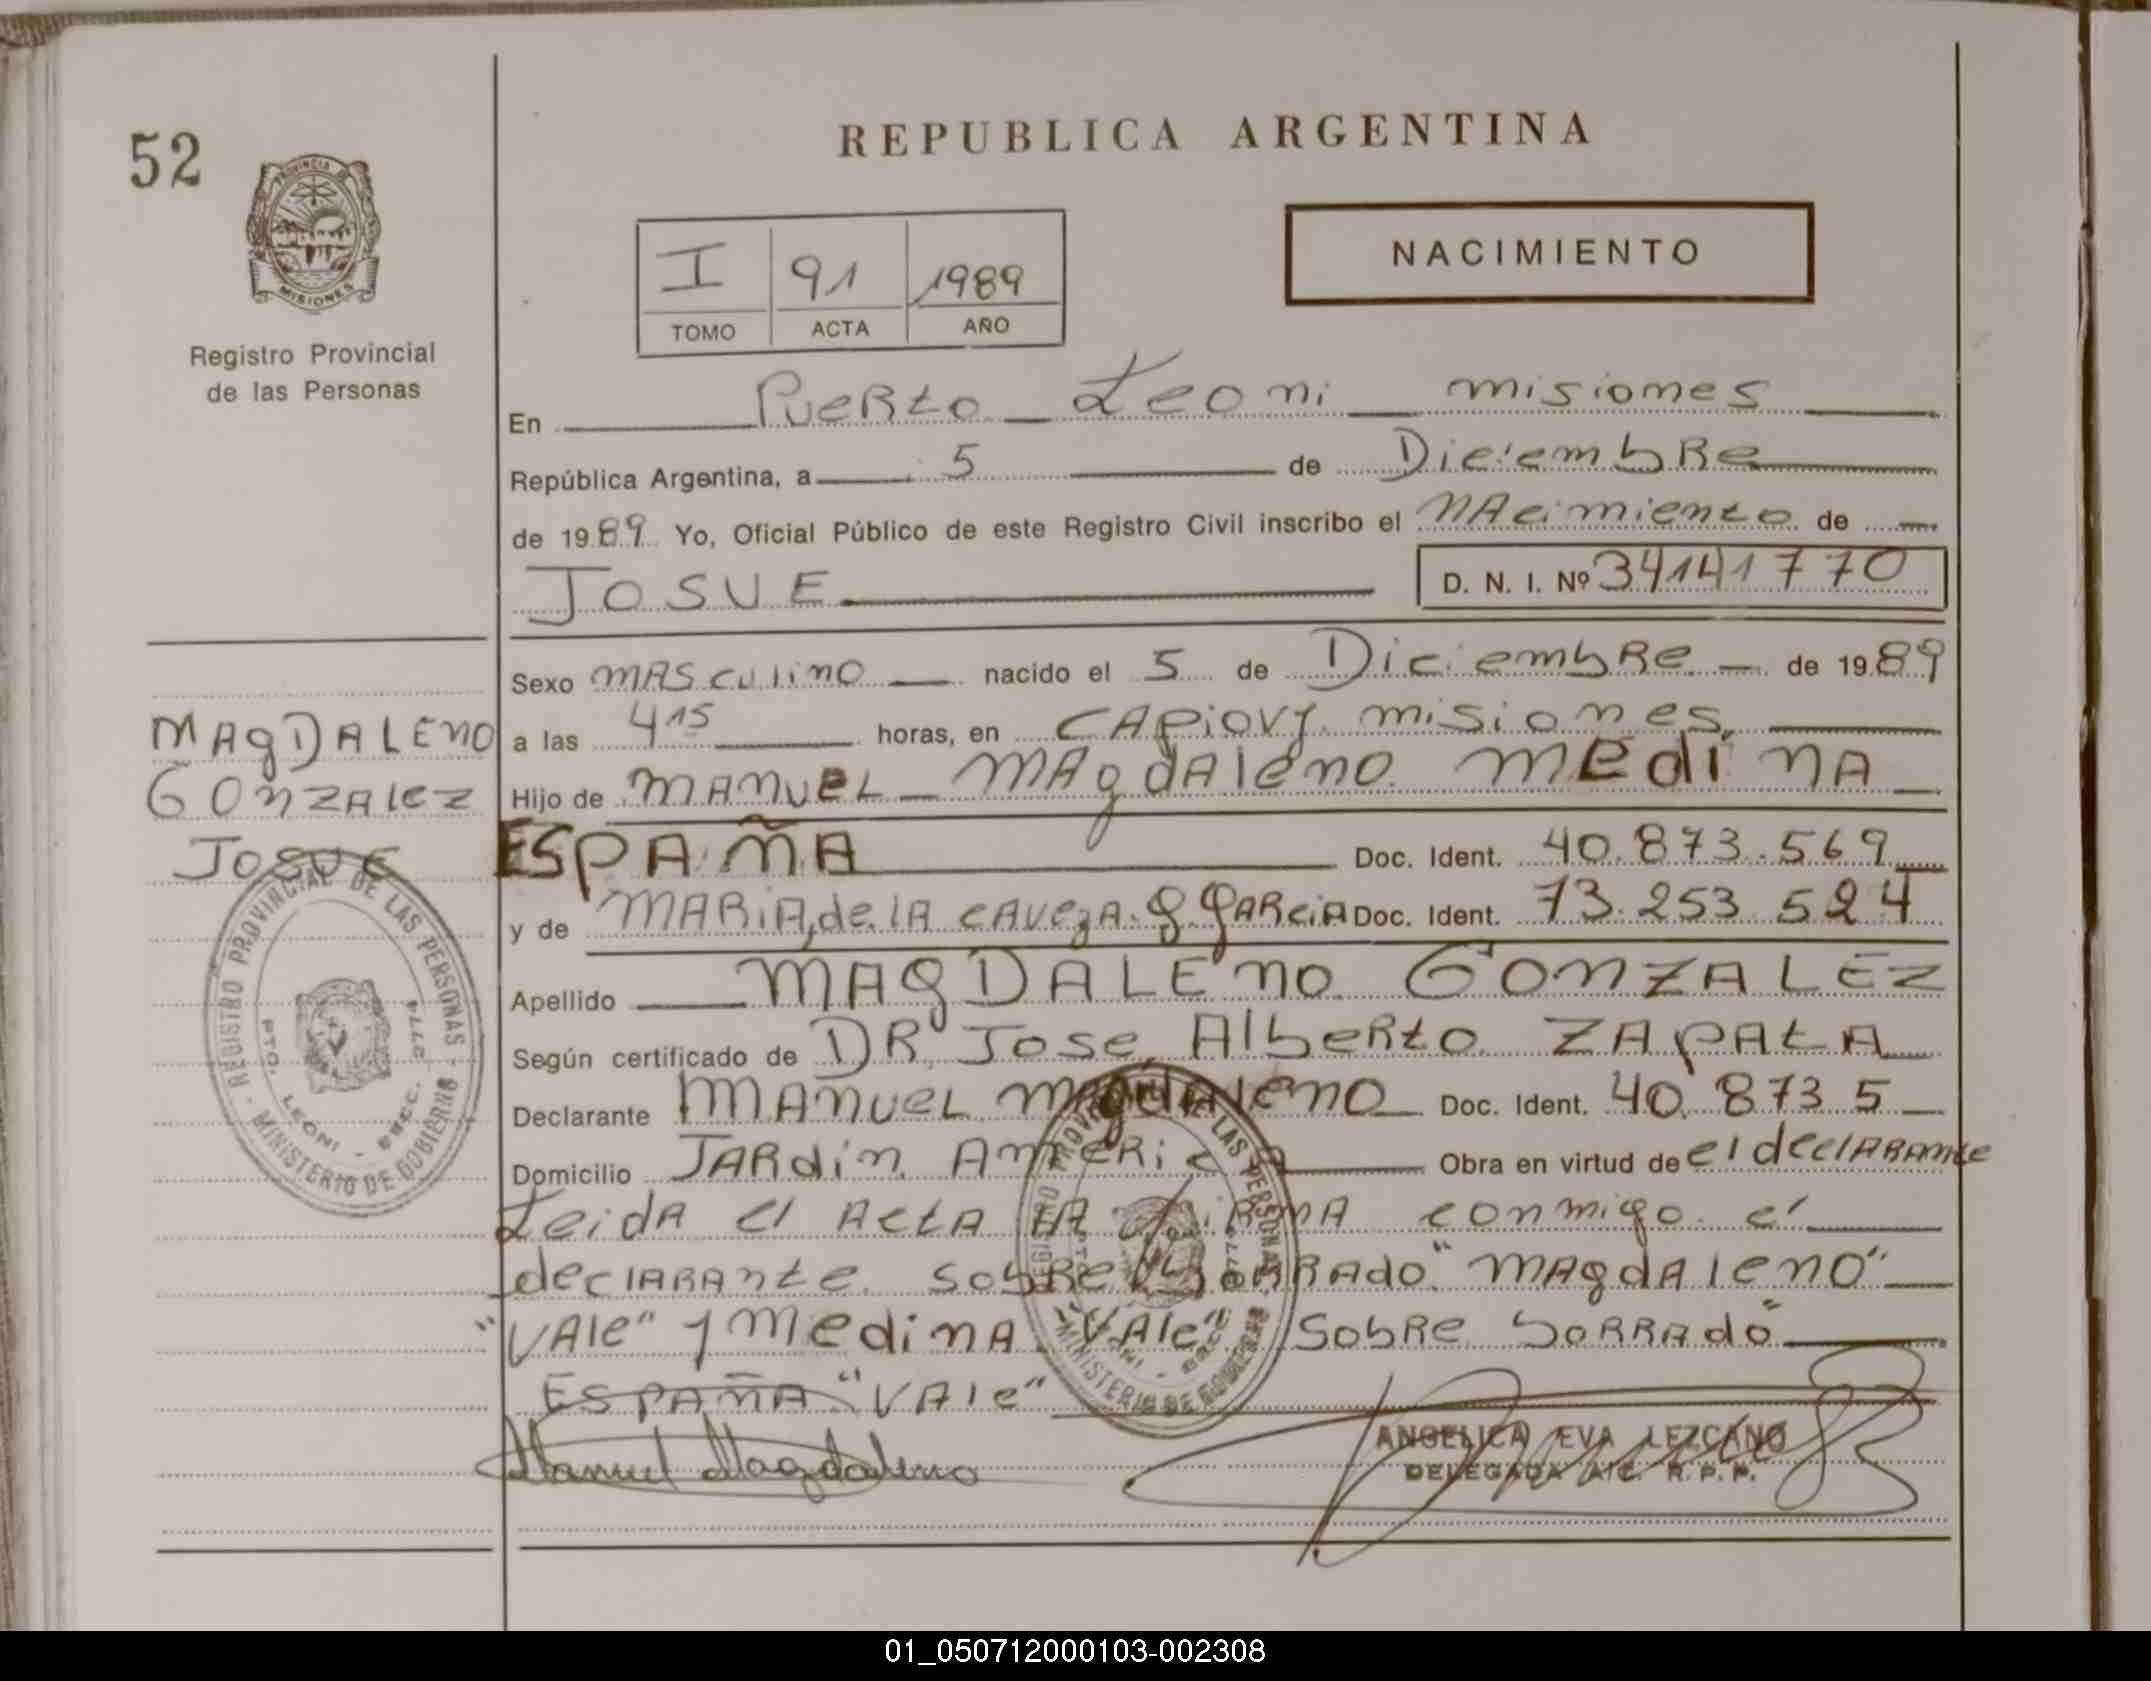 52
REPUBLICA ARGENTINA
NACIMIENTO
PROVINCIA DE
MISIONES
I 91 1989
TOMO ACTA AÑO
Registro Provincial
de las Personas
En PueRto Leoni misiones
República Argentina, a 5 de DiciembRe
de 1989 Yo, Oficial Público de este Registro Civil inscribo el NAcimiento de
JOSUE D. N. I. Nº 34141770
Sexo MASculino nacido el 5 de DiciembRe de 1989
a las 4 15 horas, en CApiovy misiones
Hijo de MANueL MAgdAleno Medina
ESPAÑA Doc. Ident. 40.873.569
y de MARiA, de lA CAvezA G GARciA Doc. Ident. 73.253.524
Apellido MAgDALENO GONZALEZ
Según certificado de DR Jose AlbeRto ZAPAtA
Declarante MANueL MAgdAleno Doc. Ident. 40.873 5
Domicilio JARdin AmeRicA Obra en virtud de el declARAnte
Leida el ActA lA fiRmA conmigo el
declARAnte. SobRe boRRAdo "MAgdAleno"
"VAle" y Medina "VAle" SobRe boRRAdo"
ESPAÑA "VAle"
Manuel Magdaleno
ANGELICA EVA LEZCANO
DELEGADA A/C. R.P.P.
MAgDALENO
GONZALEZ
JOSUE
REGISTRO PROVINCIAL DE LAS PERSONAS - MINISTERIO DE GOBIERNO
PTO. LEONI - SECC. 2774
01_050712000103-002308